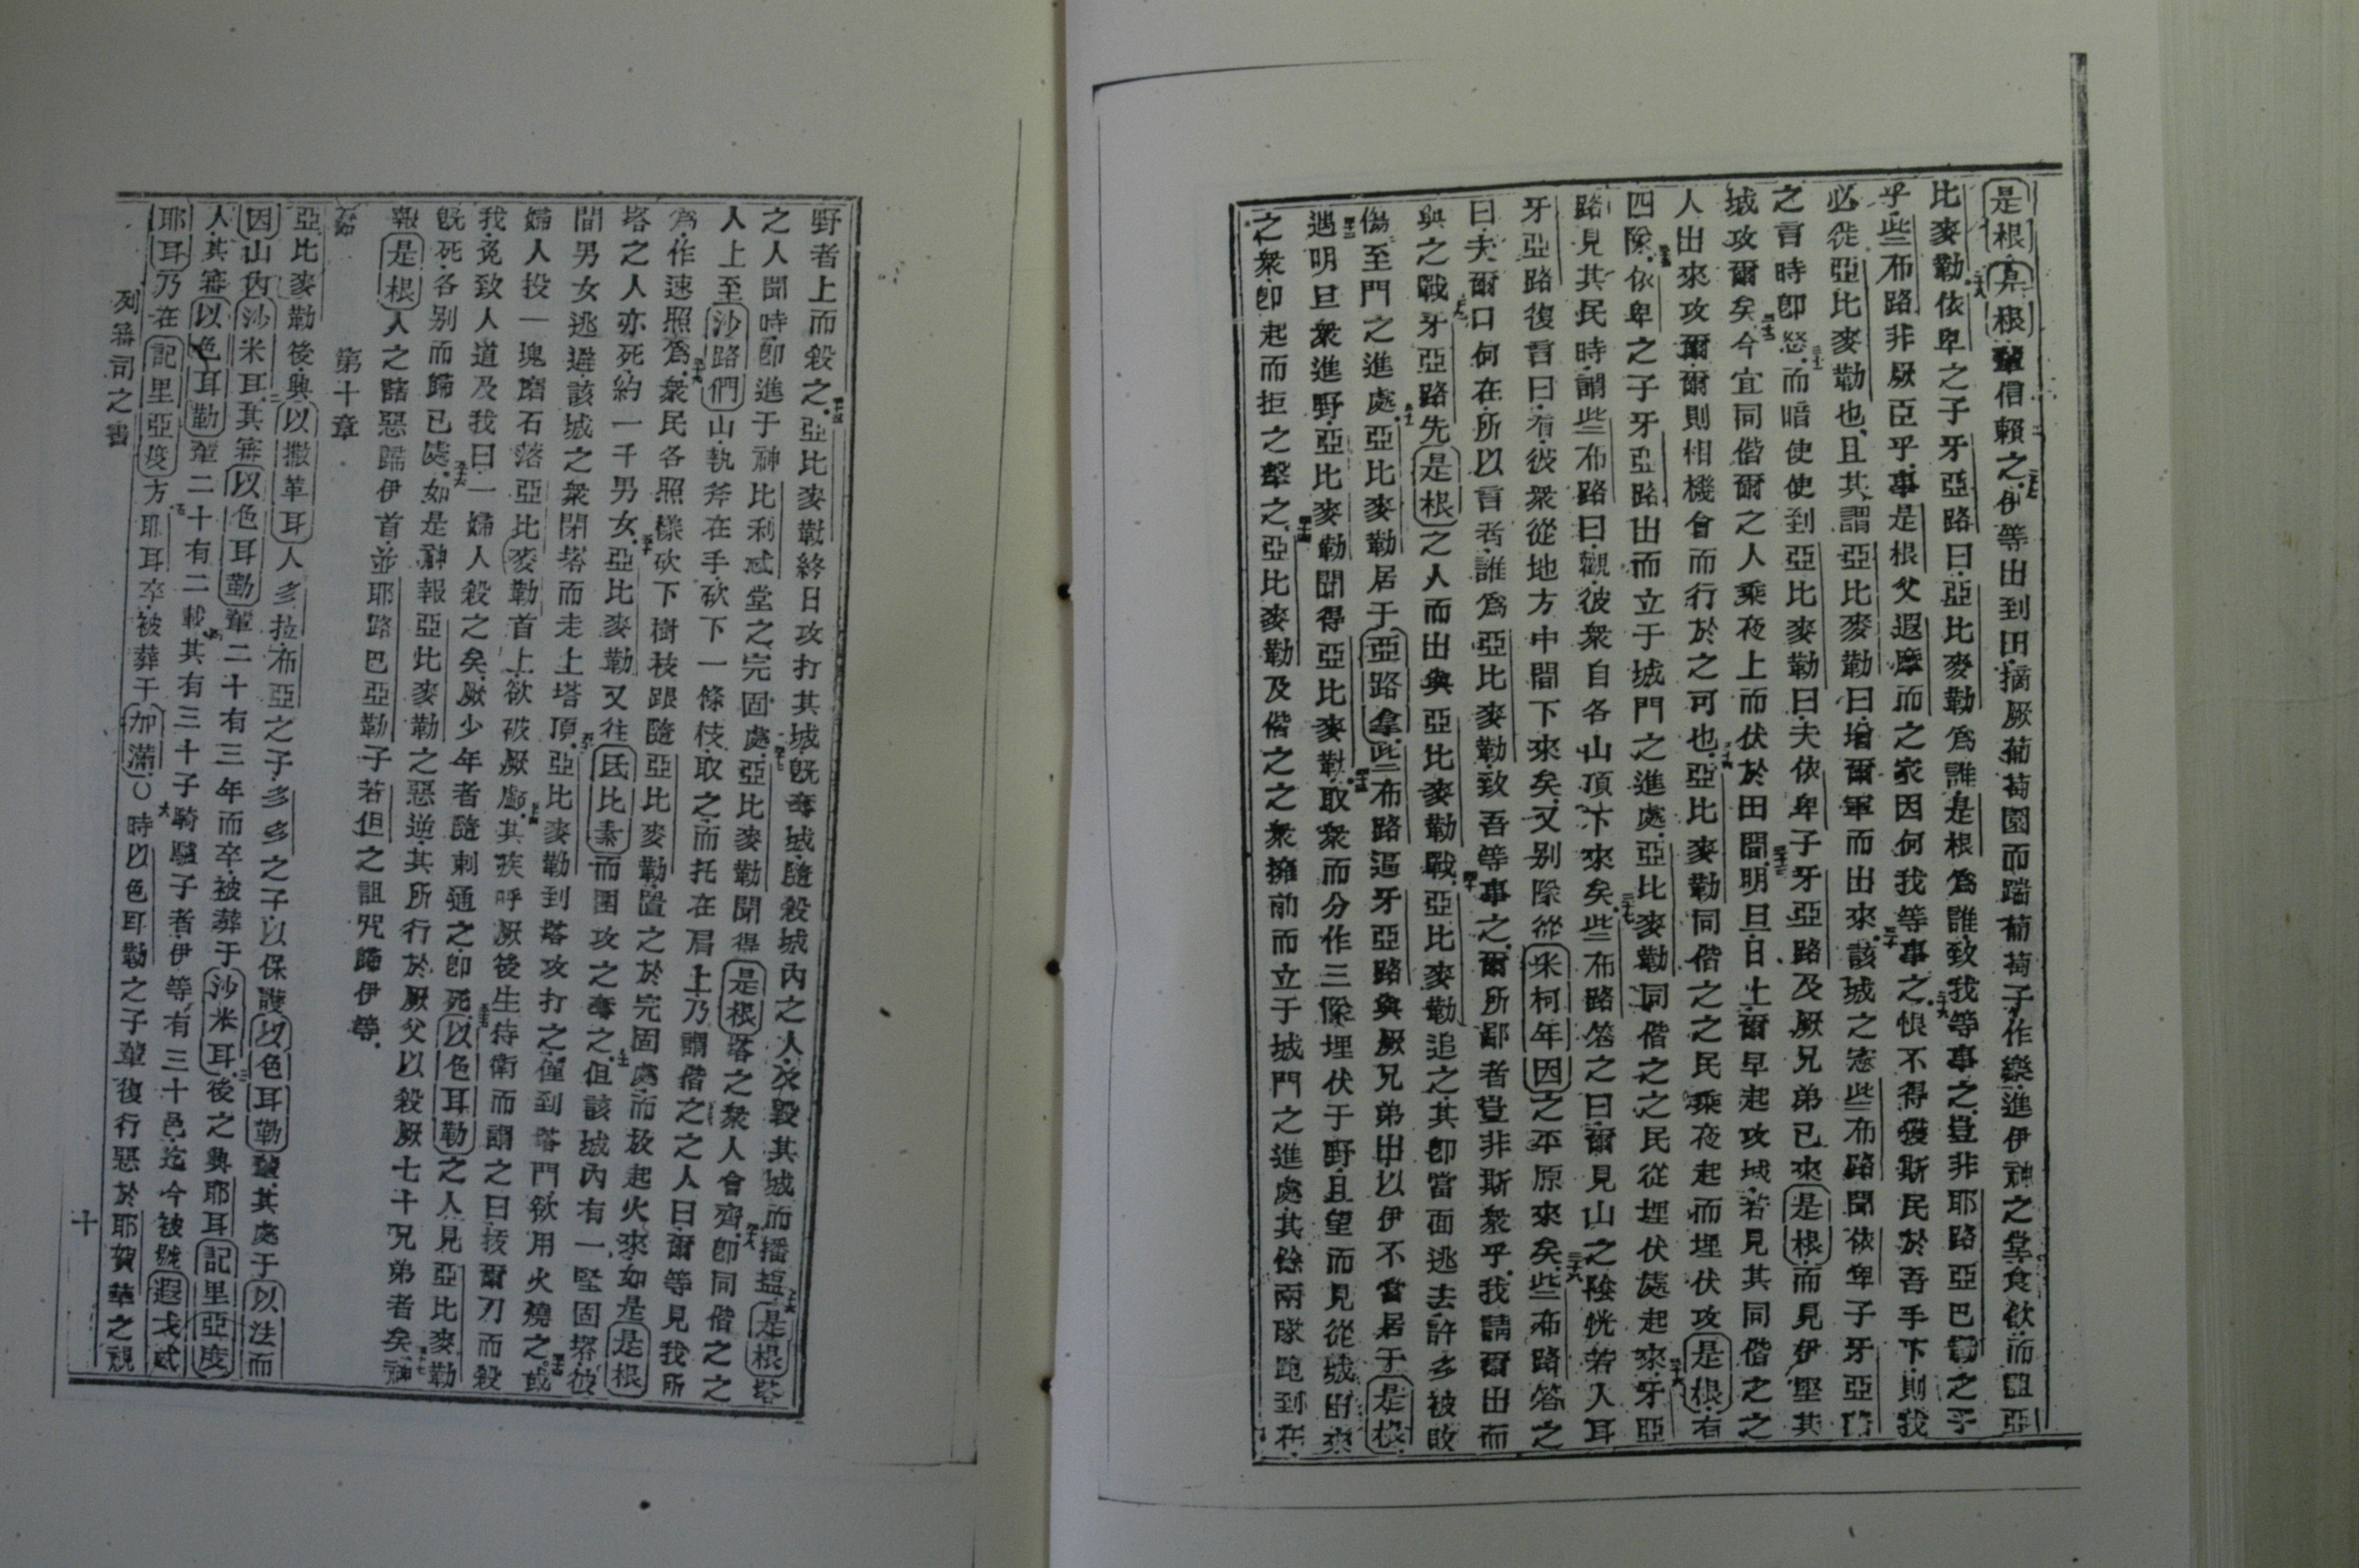 是根其根輩信賴之伊等出到田摘厥葡萄園而踹葡萄子作樂進伊神之堂食飲而詛亞
比麥勒依卑之子牙亞路曰亞比麥勒爲誰是根爲誰致我等事之豈非耶路亞巴勒之子
乎些布路非厥臣乎事是根父遐摩而之家因何我等事之恨不得獲斯民於吾手下則我
必徙亞比麥勒也且其謂亞比麥勒曰增爾軍而出來該城之憲些布路聞依卑子牙亞路
之言時卽怒而暗使使到亞比麥勒曰夫依卑子牙亞路及厥兄弟已來是根而見伊堅其
城攻爾矣今宜同偕爾之人乘夜上而伏於田間明旦日上爾早起攻城若見其同偕之之
人出來攻爾爾則相機會而行於之可也亞比麥勒同偕之之民乘夜起而埋伏攻是根有
四隊依卑之子牙亞路出而立于城門之進處亞比麥勒同偕之之民從埋伏處起來牙亞
路見其民時謂些布路曰觀彼衆自各山頂下來矣些布路答之曰爾見山之陰恍若人耳
牙亞路復言曰看彼衆從地方中間下來矣又別隊從米柯年因之平原來矣些布路答之
曰夫爾口何在所以言者誰爲亞比麥勒致吾等事之爾所鄙者豈非斯衆乎我請爾出而
與之戰牙亞路先是根之人而出與亞比麥勒戰亞比麥勒追之其卽當面逃去許多被敗
傷至門之進處亞比麥勒居于亞路拿些布路逼牙亞路與厥兄弟出以伊不當居于是根
遇明旦衆進野亞比麥勒聞得亞比麥勒取衆而分作三隊埋伏于野且望而見從城出來
之衆卽起而拒之擊之亞比麥勒及偕之之衆擁前而立于城門之進處其餘兩隊跑到在
野者上而殺之亞比麥勒終日攻打其城旣奪城隨殺城內之人及毀其城而播塩是根塔
之人聞時卽進于神比利忒堂之完固處亞比麥勒聞得是根塔之衆人會齊卽同偕之之
人上至沙路們山執斧在手砍下一條枝取之而托在肩上乃謂偕之之人曰爾等見我所
爲作速照爲衆民各照樣砍下樹枝跟隨亞比麥勒置之於完固處而放起火來如是是根
塔之人亦死約一千男女亞比麥勒又往氐比素而圍攻之奪之但該城內有一堅固塔彼
間男女逃避該城之衆閉塔而走上塔頂亞比麥勒到塔攻打之僅到塔門欲用火燒之或
婦人投一塊磨石落亞比麥勒首上欲破厥顱其疾呼厥後生侍衛而謂之曰拔爾刀而殺
我免致人道及我曰一婦人殺之矣厥少年者隨刺通之卽死以色耳勒之人見亞比麥勒
旣死各別而歸已處如是神報亞比麥勒之惡逆其所行於厥父以殺厥七十兄弟者矣神
報是根人之諸惡歸伊首並耶路巴亞勒子若但之詛咒歸伊等
第十章
亞比麥勒後與以撒革耳人多拉布亞之子多多之子以保護以色耳勒輩其處于以法而
因山內沙米耳其審以色耳勒輩二十有三年而卒被葬于沙米耳後之與耶耳記里亞度
人其審以色耳勒輩二十有二載其有三十子騎驢子者伊等有三十邑迄今被號遐戈忒
耶耳乃在記里亞度方耶耳卒被葬于加滿○時以色耳勒之子輩復行惡於耶賀華之視
列審司之書
十